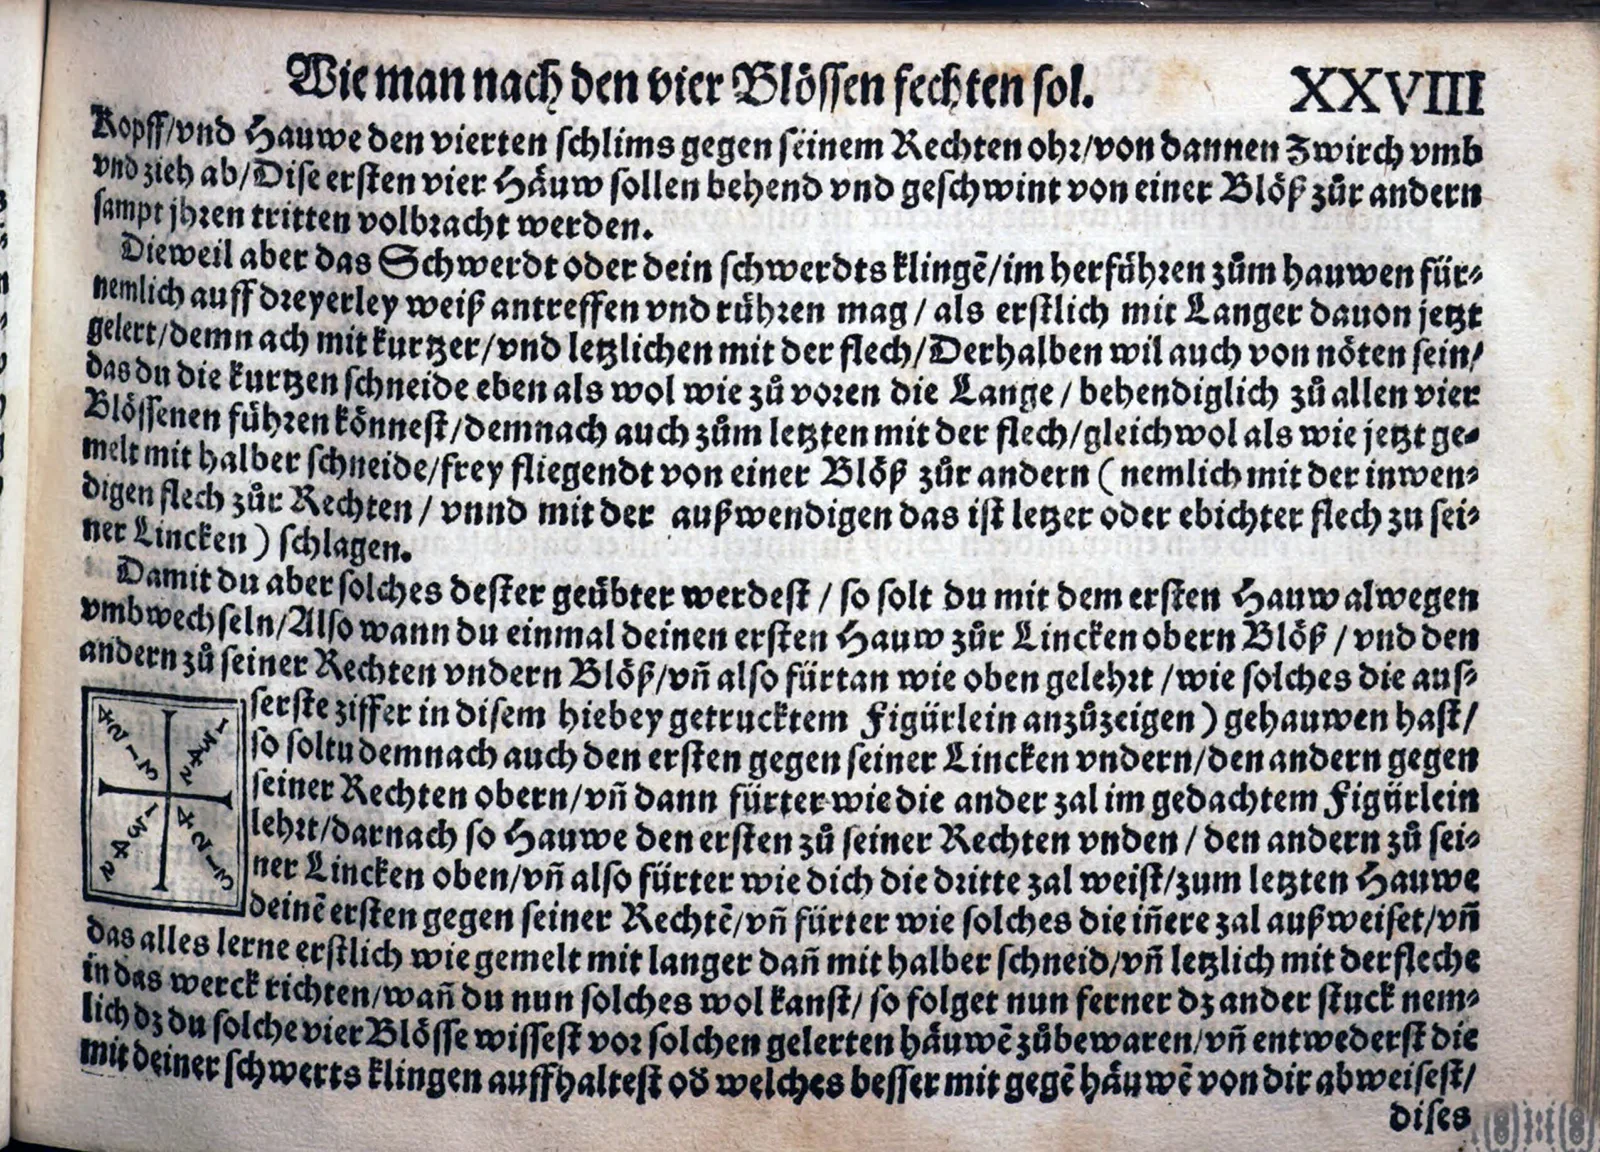 Wie man nach den vier Blössen fechten sol. XXVIII
Kopff/vnd Hauwe den vierten schlims gegen seinem Rechten ohr/von dannen Zwirch vmb
vnd zieh ab/Dise ersten vier Häuw sollen behend vnd geschwint von einer Blöß zůr andern
sampt jhren tritten volbracht werden.
Dieweil aber das Schwerdt oder dein schwerdts klingē/im herführen zům hauwen für⸗
nemlich auff dreyerley weiß antreffen vnd rühren mag/ als erstlich mit Langer dauon jetzt
gelert/demn ach mit kurtzer/vnd letzlichen mit der flech/Derhalben wil auch von nöten sein/
das du die kurtzen schneide eben als wol wie zů voren die Lange/ behendiglich zů allen vier
Blössenen führen könnest/demnach auch zům letzten mit der flech/gleichwol als wie jetzt ge⸗
melt mit halber schneide/frey fliegendt von einer Blöß zůr andern (nemlich mit der inwen⸗
digen flech zůr Rechten/ vnnd mit der außwendigen das ist letzer oder ebichter flech zu sei⸗
ner Lincken) schlagen.
Damit du aber solches dester geübter werdest/ so solt du mit dem ersten Hauw alwegen
vmbwechseln/Also wann du einmal deinen ersten Hauw zůr Lincken obern Blöß/ vnd den
andern zů seiner Rechten vndern Blöß/vñ also fürtan wie oben gelehrt/wie solches die aus⸗
serste ziffer in disem hiebey getrucktem Figürlein anzůzeigen) gehauwen hast/
so soltu demnach auch den ersten gegen seiner Lincken vndern/den andern gegen
seiner Rechten obern/vñ dann fürter wie die ander zal im gedachtem Figürlein
lehrt/darnach so Hauwe den ersten zů seiner Rechten vnden/ den andern zů sei⸗
ner Lincken oben/vñ also fürter wie dich die dritte zal weist/zum letzten Hauwe
deinē ersten gegen seiner Rechtē/vñ fürter wie solches die iñere zal außweiset/vñ
das alles lerne erstlich wie gemelt mit langer dañ mit halber schneid/vñ letzlich mit der fleche
in das werck richten/wañ du nun solches wol kanst/ so folget nun ferner dz ander stuck nem⸗
lich dz du solche vier Blösse wissest vor solchen gelerten häuwē zůbewaren/vñ entwederst die
mit deiner schwerts klingen auffhaltest oď welches besser mit gegē häuwē von dir abweisest/
dises
4 2 1 3
1 3 4 2
1 3 4 2
4 2 1 3